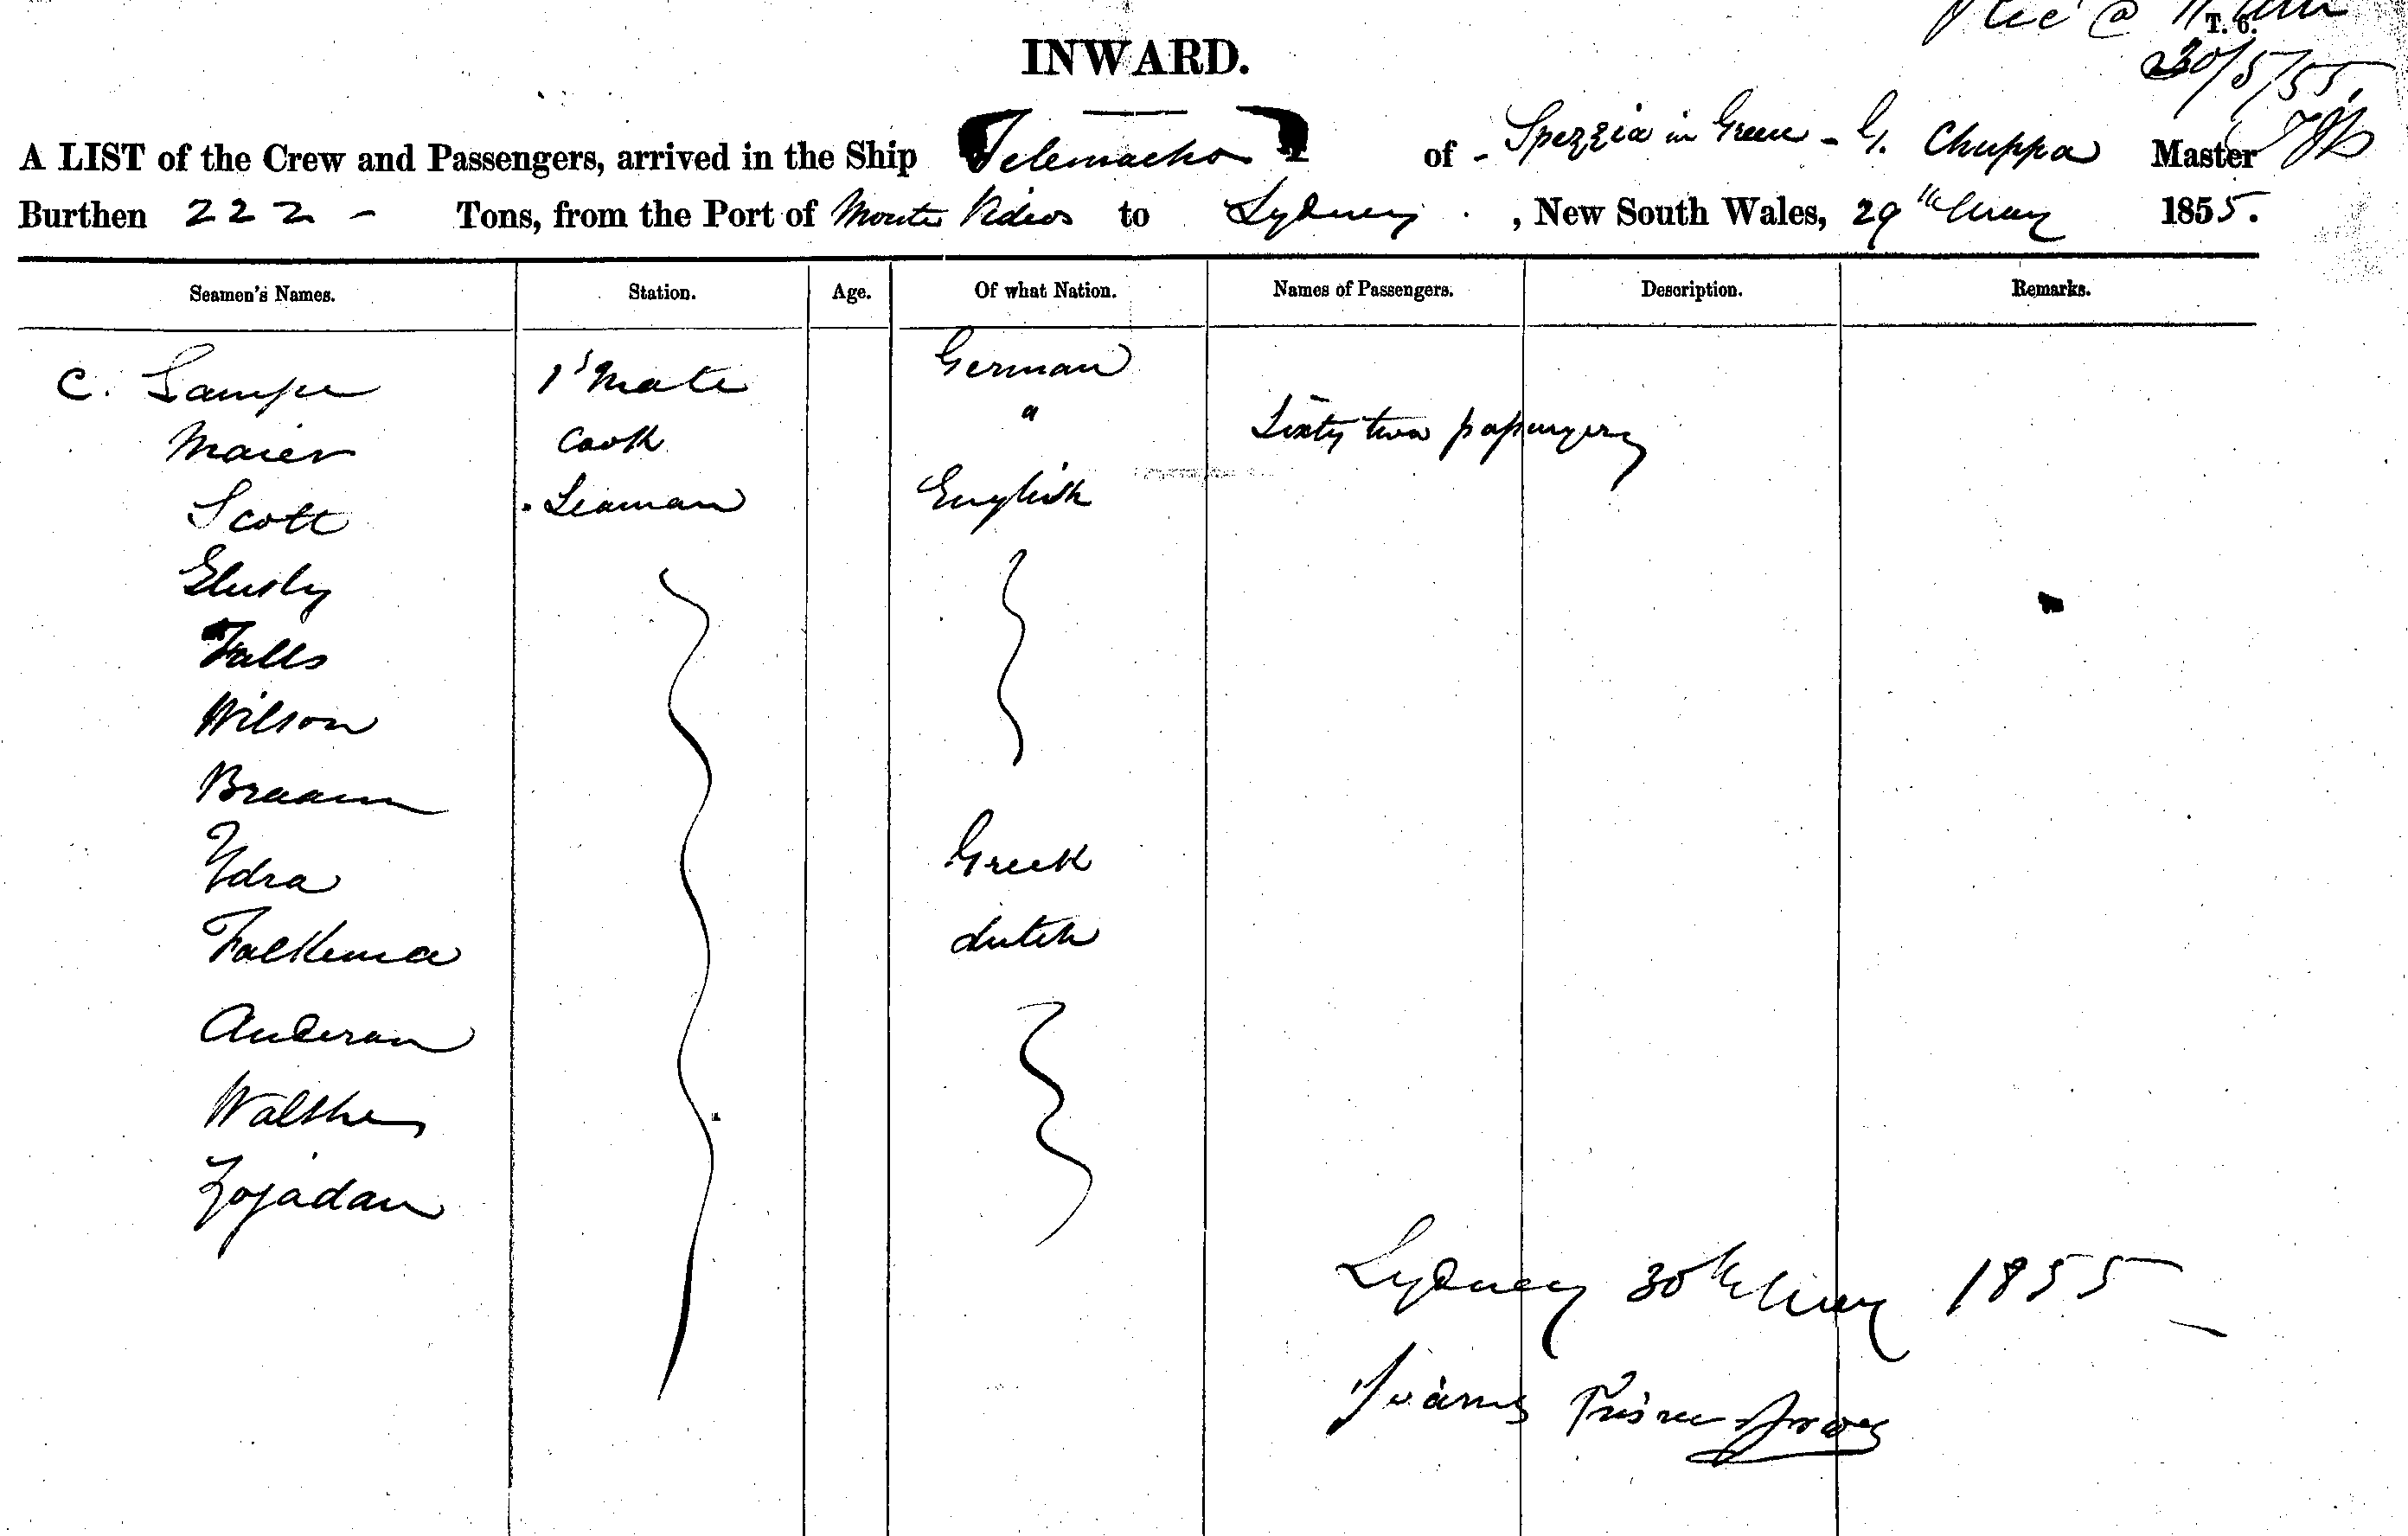 Rec @
T. 6.
INWARD.
30/5/55
A LIST of the Crew and Passengers, arrived in the Ship Telemacho of - Spezzia in Greece - G. Chuppa Master
Burthen 222 - Tons, from the Port of Monte Video to Sydney, New South Wales, 29th May 1855.
Seamen's Names. Station. Age. Of what Nation. Names of Passengers. Description. Remarks.
C. Lampe 1st Mate German
Maier Cook " Sixty two passengers
Scott Seaman English
Falls
Wilson
Braam
Ydra Greek
Falkema dutch
Anderson
Walther
Zojadan
Sydney 30th May 1855